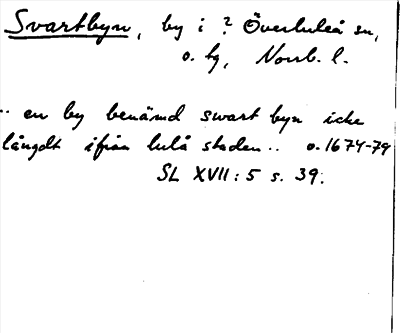 Svartbyn, by i ? Överluleå sn,
o. tg, Norrb. l.
.. en by benämd swart byn icke
långdt ifrån luleå staden .. o. 1674-79
SL XVII: 5 s. 39.